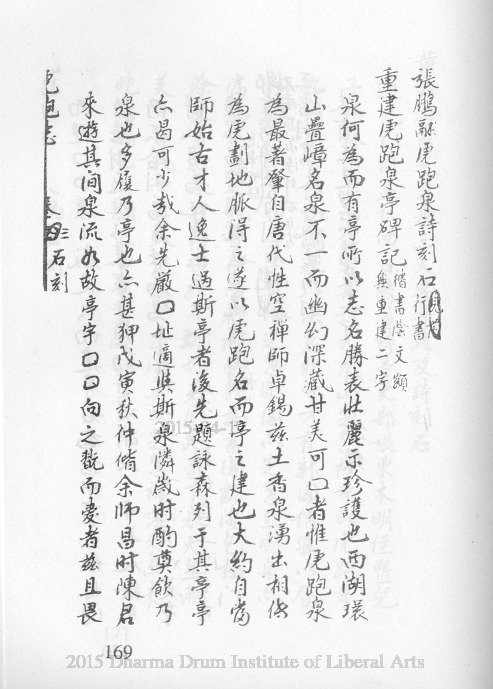 張鵬翮虎跑泉詩刻石 行書 現存
重建虎跑泉亭碑記 楷書陰文額無重建二字
泉何為而有亭所以志名勝表壯麗示珍護也西湖環
山疊嶂名泉不一而幽幻深藏甘美可口者惟虎跑泉
為最著肇自唐代性空禅師卓錫茲土香泉湧出相傳
為虎劃地脈得之遂以虎跑名而亭之建也大約自當
師始古才人逸士過斯亭者後先題詠森列于其亭亭
亦曷可少哉余先嚴口址適與斯泉隣歲時酌奠飲乃
泉也多履乃亭也亦甚狎戊寅秋仲偕余師昌時陳君
來遊其間泉流如故亭宇口口向之翫而愛者茲且畏
虎跑志 卷 石刻
169
2015 Dharma Drum Institute of Liberal Arts